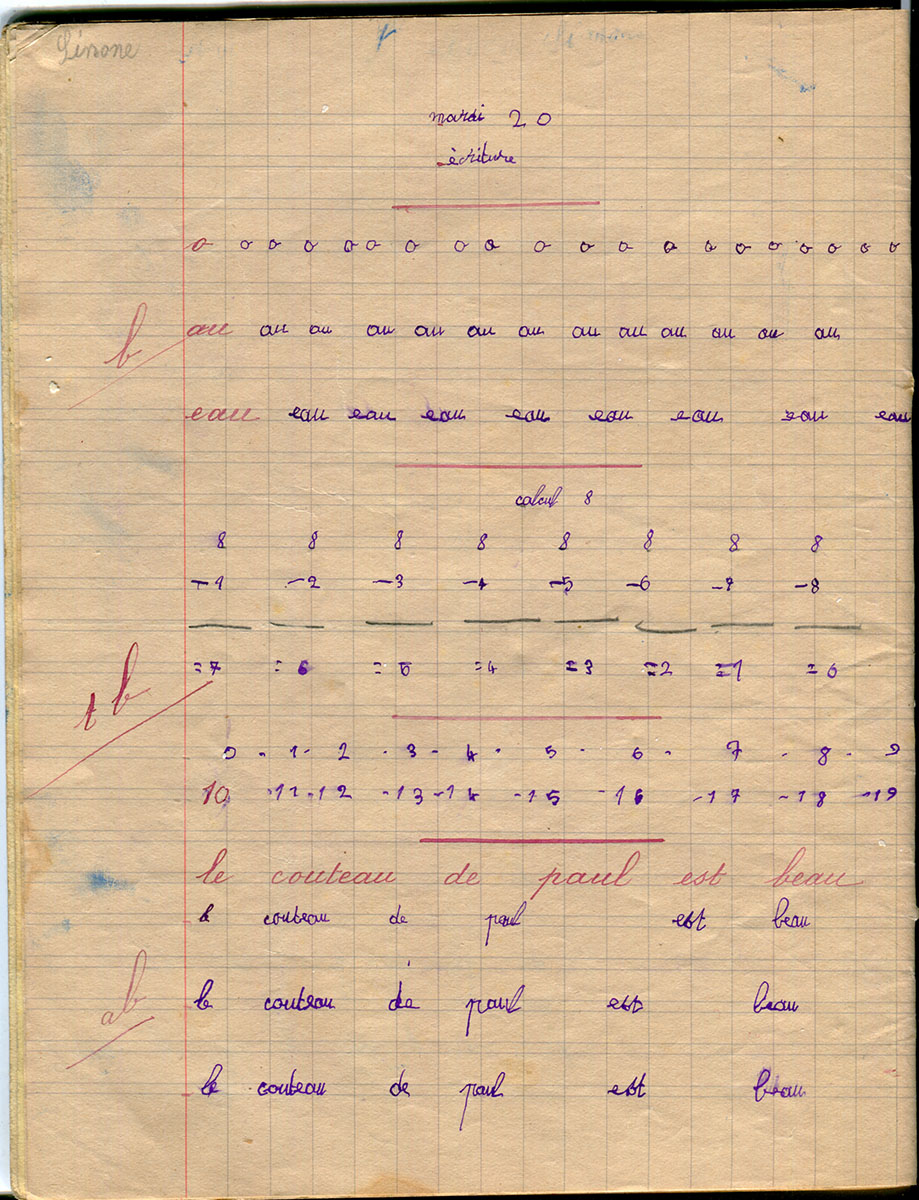 Simone
mardi 20
écriture
o o o o o o o o o o o o o o o o o o o o
b
au au au au au au au au au au au au au
eau eau eau eau eau eau eau eau eau
calcul 8
8 8 8 8 8 8 8 8
-1 -2 -3 -4 -5 -6 -7 -8
=7 =6 =5 =4 =3 =2 =1 =0
tb
0 - 1 - 2 - 3 - 4 - 5 - 6 - 7 - 8 - 9
10 - 11 - 12 - 13 - 14 - 15 - 16 - 17 - 18 - 19
le couteau de paul est beau
le couteau de paul est beau
ab
le couteau de paul est beau
le couteau de paul est beau